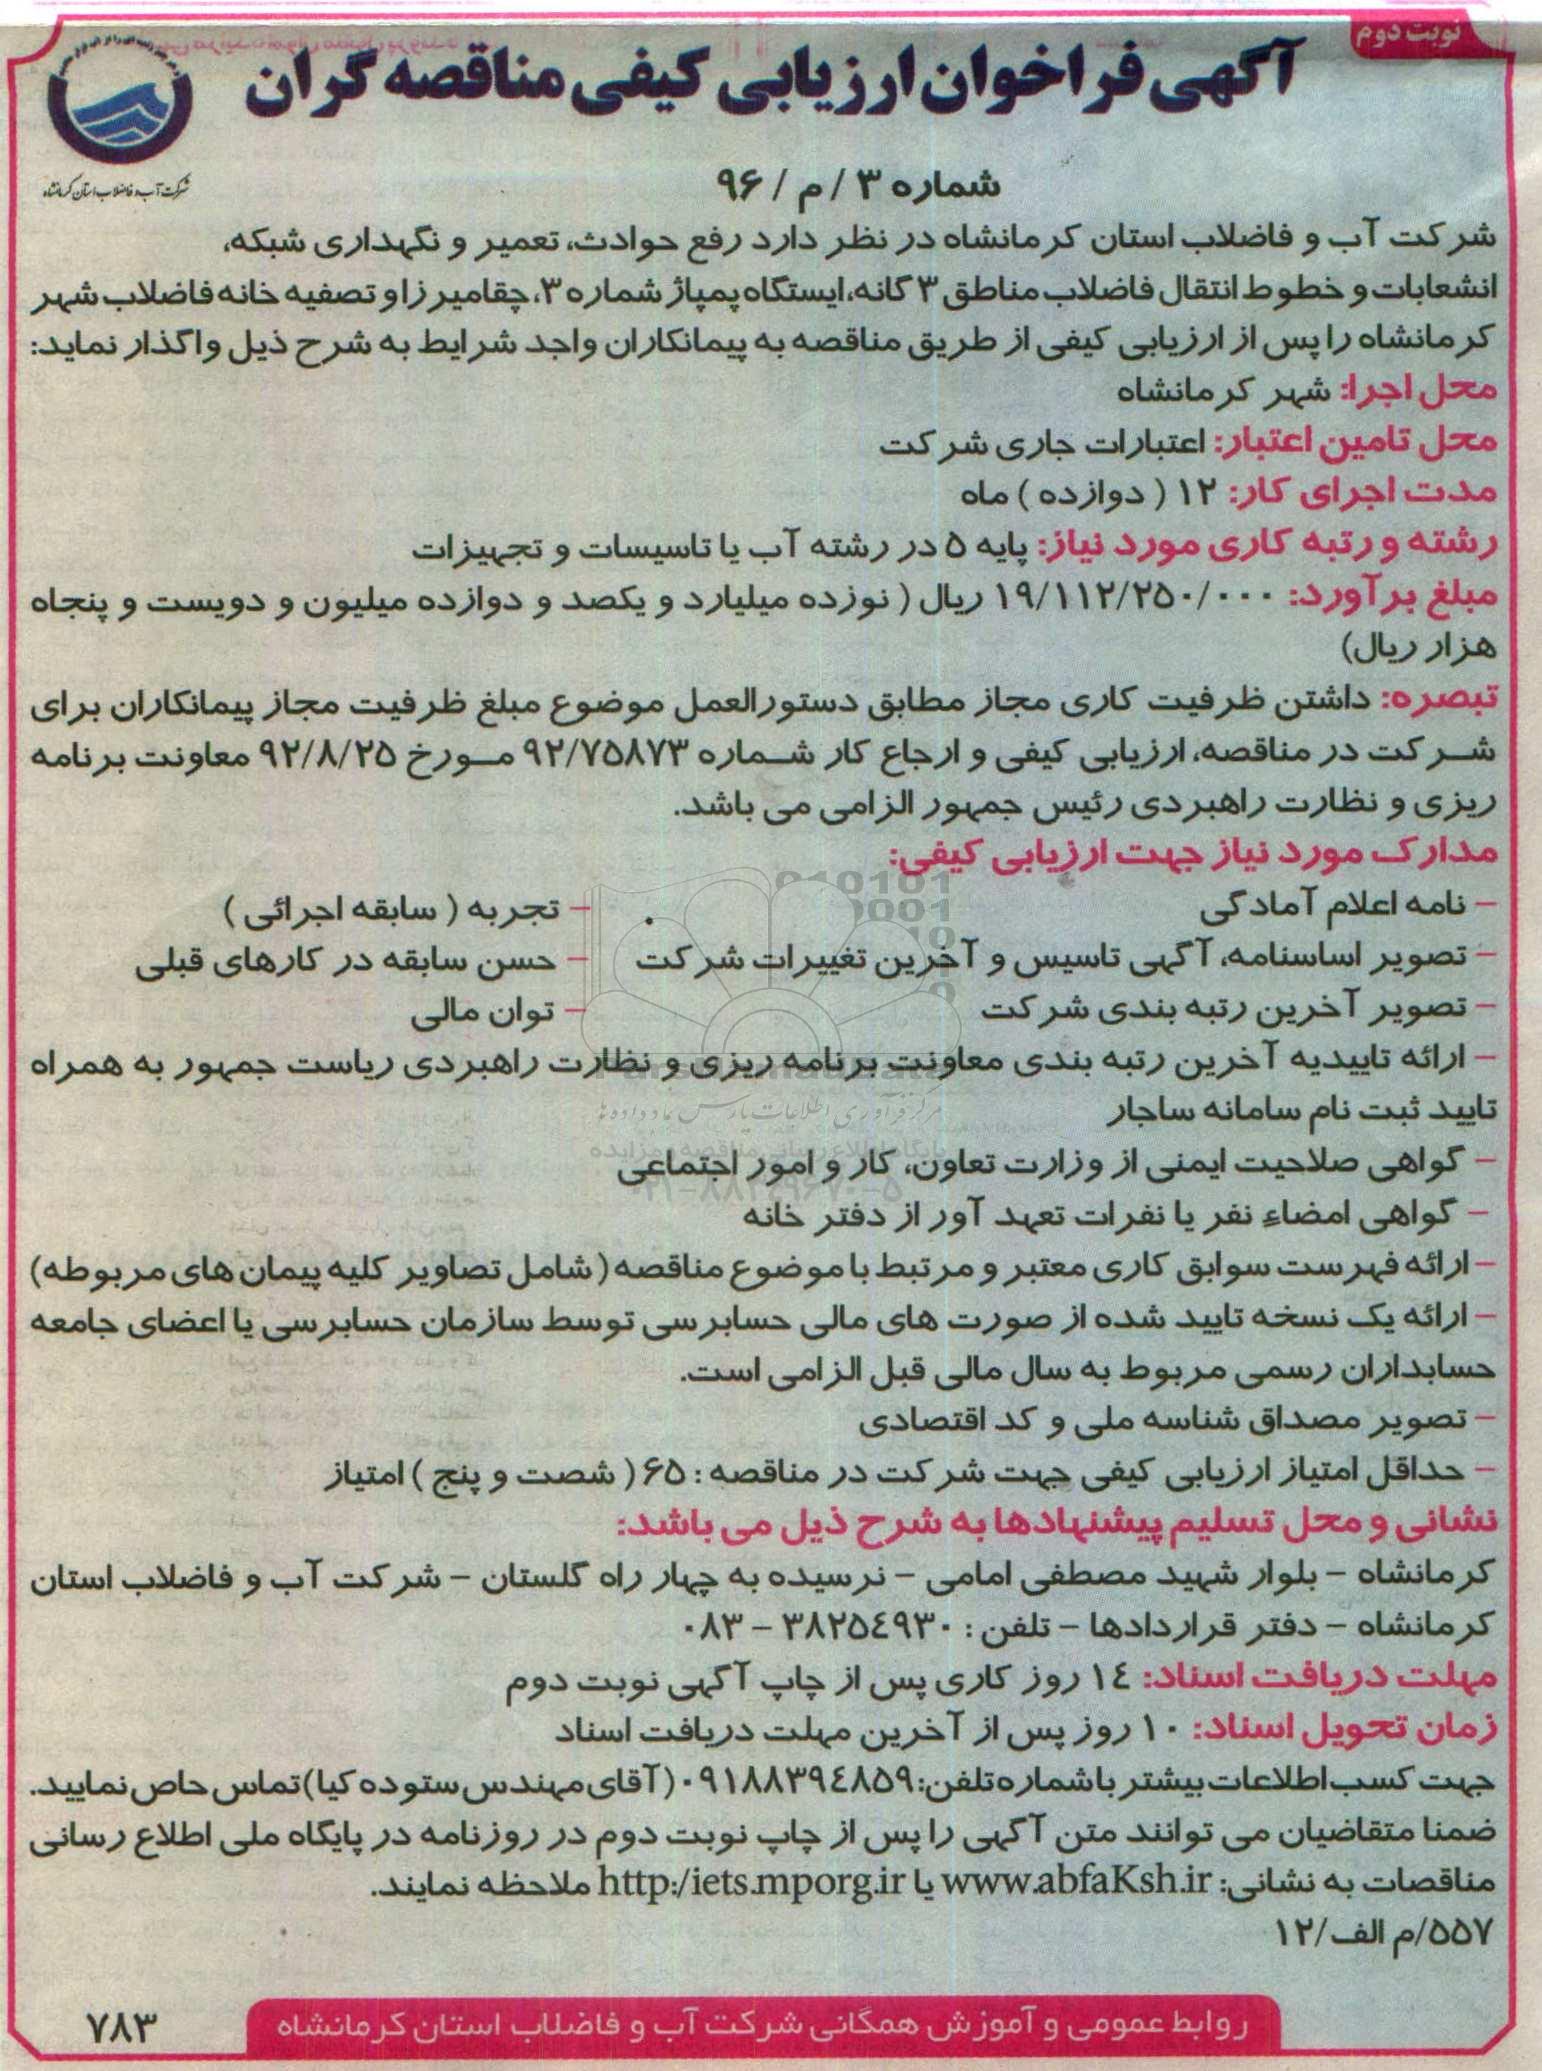 نوبت دوم
آگهی فراخوان ارزیابی کیفی مناقصه گران
شرکت آب و فاضلاب استان کرمانشاه
شماره ۳ / م / ۹۶
شرکت آب و فاضلاب استان کرمانشاه در نظر دارد رفع حوادث، تعمیر و نگهداری شبکه،
انشعابات و خطوط انتقال فاضلاب مناطق ۳ گانه، ایستگاه پمپاژ شماره ۳، چقامیرزا و تصفیه خانه فاضلاب شهر
کرمانشاه را پس از ارزیابی کیفی از طریق مناقصه به پیمانکاران واجد شرایط به شرح ذیل واگذار نماید:
محل اجرا: شهر کرمانشاه
محل تامین اعتبار: اعتبارات جاری شرکت
مدت اجرای کار: ۱۲ ( دوازده ) ماه
رشته و رتبه کاری مورد نیاز: پایه ۵ در رشته آب یا تاسیسات و تجهیزات
مبلغ برآورد: ۱۹/۱۱۲/۲۵۰/۰۰۰ ریال ( نوزده میلیارد و یکصد و دوازده میلیون و دویست و پنجاه
هزار ریال)
تبصره: داشتن ظرفیت کاری مجاز مطابق دستورالعمل موضوع مبلغ ظرفیت مجاز پیمانکاران برای
شرکت در مناقصه، ارزیابی کیفی و ارجاع کار شماره ۹۲/۷۵۸۷۳ مورخ ۹۲/۸/۲۵ معاونت برنامه
ریزی و نظارت راهبردی رئیس جمهور الزامی می باشد.
مدارک مورد نیاز جهت ارزیابی کیفی:
– نامه اعلام آمادگی – تجربه ( سابقه اجرائی )
– تصویر اساسنامه، آگهی تاسیس و آخرین تغییرات شرکت – حسن سابقه در کارهای قبلی
– تصویر آخرین رتبه بندی شرکت – توان مالی
– ارائه تاییدیه آخرین رتبه بندی معاونت برنامه ریزی و نظارت راهبردی ریاست جمهور به همراه
تایید ثبت نام سامانه ساجار
– گواهی صلاحیت ایمنی از وزارت تعاون، کار و امور اجتماعی
– گواهی امضاء نفر یا نفرات تعهد آور از دفتر خانه
– ارائه فهرست سوابق کاری معتبر و مرتبط با موضوع مناقصه (شامل تصاویر کلیه پیمان های مربوطه)
– ارائه یک نسخه تایید شده از صورت های مالی حسابرسی توسط سازمان حسابرسی یا اعضای جامعه
حسابداران رسمی مربوط به سال مالی قبل الزامی است.
– تصویر مصداق شناسه ملی و کد اقتصادی
– حداقل امتیاز ارزیابی کیفی جهت شرکت در مناقصه : ۶۵ ( شصت و پنج ) امتیاز
نشانی و محل تسلیم پیشنهادها به شرح ذیل می باشد:
کرمانشاه – بلوار شهید مصطفی امامی – نرسیده به چهار راه گلستان – شرکت آب و فاضلاب استان
کرمانشاه – دفتر قراردادها – تلفن : ۳۸۲۵٤۹۳۰ – ۰۸۳
مهلت دریافت اسناد: ۱٤ روز کاری پس از چاپ آگهی نوبت دوم
زمان تحویل اسناد: ۱۰ روز پس از آخرین مهلت دریافت اسناد
جهت کسب اطلاعات بیشتر با شماره تلفن: ۰۹۱۸۸۳۹٤۸۵۹ (آقای مهندس ستوده کیا) تماس حاص نمایید.
ضمنا متقاضیان می توانند متن آگهی را پس از چاپ نوبت دوم در روزنامه در پایگاه ملی اطلاع رسانی
مناقصات به نشانی: www.abfaKsh.ir یا http:/iets.mporg.ir ملاحظه نمایند.
۵۵۷/م الف/۱۲
روابط عمومی و آموزش همگانی شرکت آب و فاضلاب استان کرمانشاه
۷۸۳